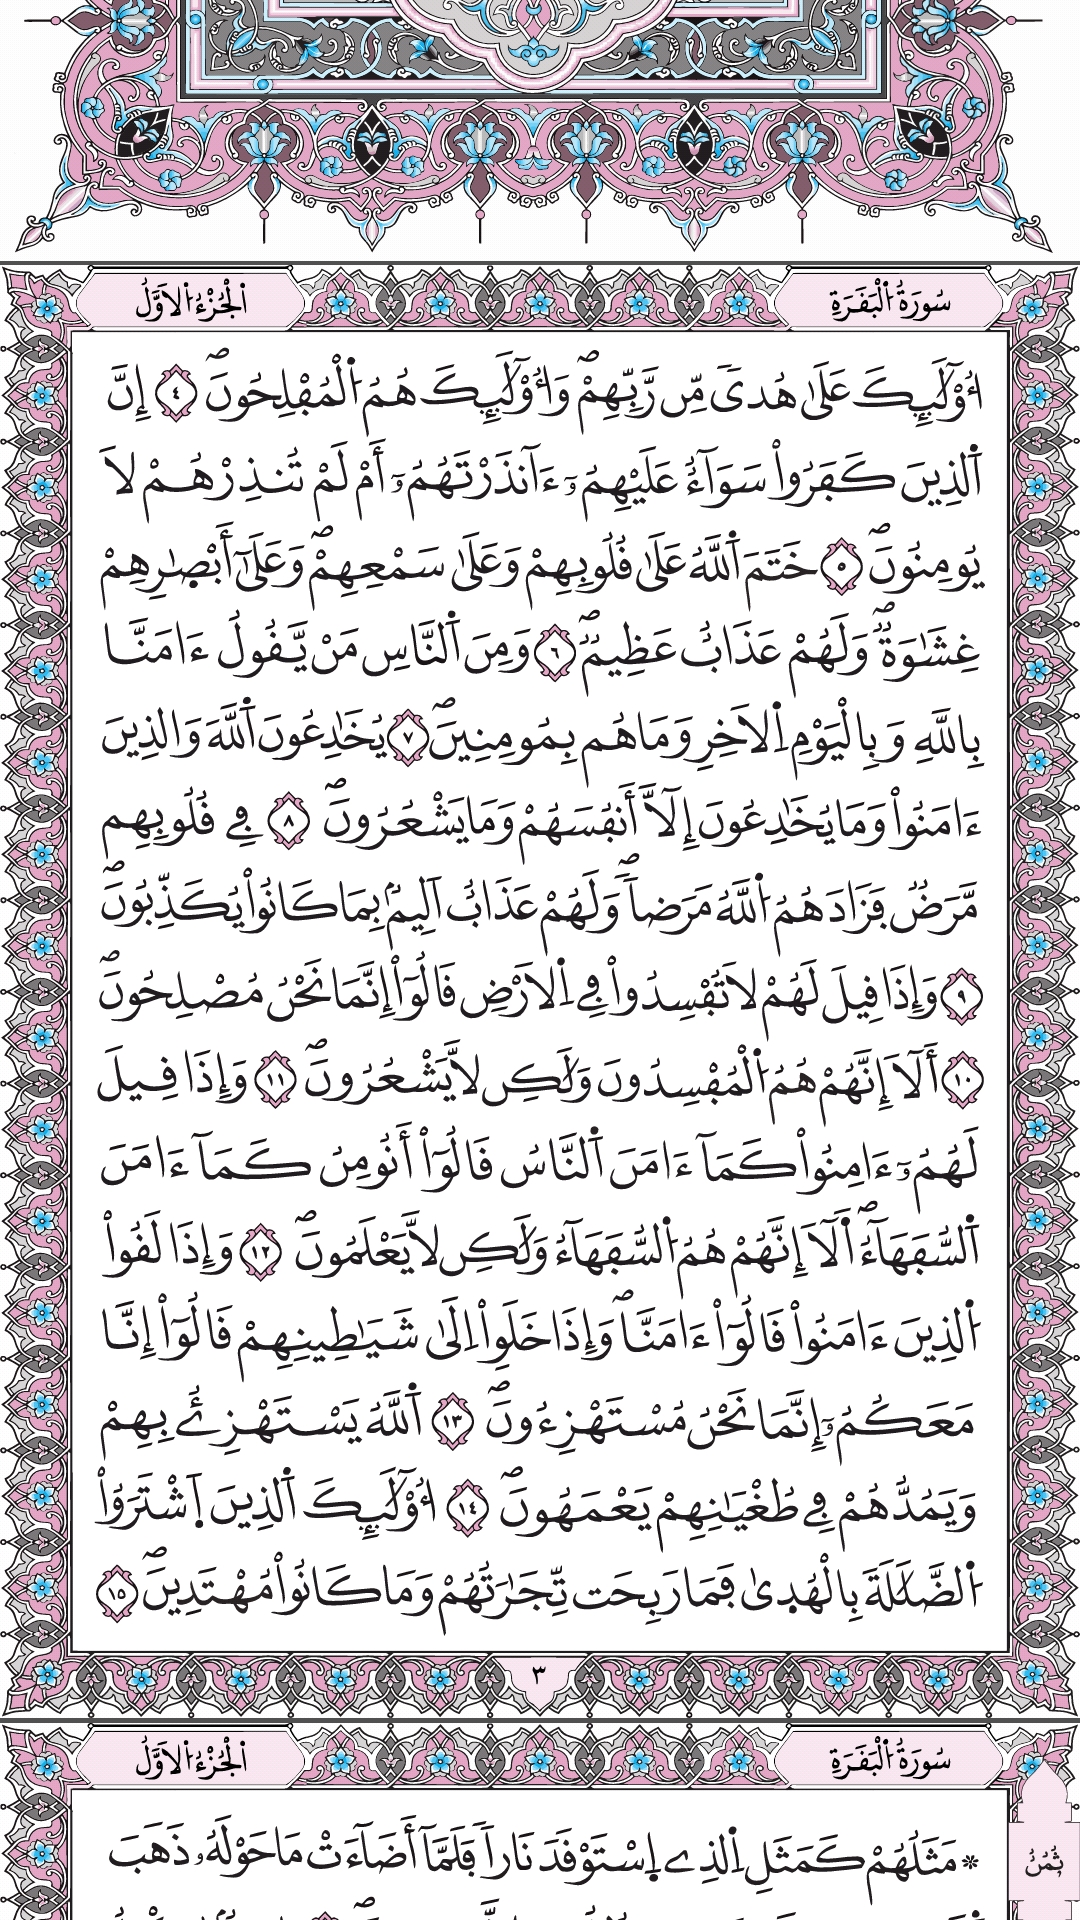 سُورَةُ الْبَقَرَةِ
اَلْجُزْءُ الاَوَّلُ
اُوْلَٰٓئِكَ عَلَىٰ هُدىٗ مِّن رَّبِّهِمْۖ وَأُوْلَٰٓئِكَ هُمُ اُ۬لْمُفْلِحُونَۖ ٤ إِنَّ
اَ۬لذِينَ كَفَرُواْ سَوَآءٌ عَلَيْهِمُۥٓ ءَآنذَرْتَهُمُۥٓ أَمْ لَمْ تُنذِرْهُمْ لَا
يُومِنُونَۖ ٥ خَتَمَ اَ۬للَّهُ عَلَىٰ قُلُوبِهِمْ وَعَلَىٰ سَمْعِهِمْۖ وَعَلَىٰٓ أَبْصٰ۪رِهِمْ
غِشَٰوَةٞۖ وَلَهُمْ عَذَابٌ عَظِيمٞۖ ٦ وَمِنَ اَ۬لنَّاسِ مَنْ يَّقُولُ ءَامَنَّا
بِاللَّهِ وَبِالْيَوْمِ اِ۬لَاخِرِ وَمَا هُم بِمُومِنِينَۖ ٧ يُخَٰدِعُونَ اَ۬للَّهَ وَالذِينَ
ءَامَنُواْ وَمَا يُخَٰدِعُونَ إِلَّآ أَنفُسَهُمْ وَمَا يَشْعُرُونَۖ ٨ فِے قُلُوبِهِم
مَّرَضٞ فَزَادَهُمُ اُ۬للَّهُ مَرَضاٗۖ وَلَهُمْ عَذَابٌ اَلِيمُۢ بِمَا كَانُواْ يُكَذِّبُونَۖ
٩ وَإِذَا قِيلَ لَهُمْ لَا تُفْسِدُواْ فِے اِ۬لَارْضِ قَالُوٓاْ إِنَّمَا نَحْنُ مُصْلِحُونَۖ
١٠ أَلَآ إِنَّهُمْ هُمُ اُ۬لْمُفْسِدُونَ وَلَٰكِن لَّا يَشْعُرُونَۖ ١١ وَإِذَا قِيلَ
لَهُمُۥٓ ءَامِنُواْ كَمَآ ءَامَنَ اَ۬لنَّاسُ قَالُوٓاْ أَنُومِنُ كَمَآ ءَامَنَ
اَ۬لسُّفَهَآءُۖ اَ۬لَآ إِنَّهُمْ هُمُ اُ۬لسُّفَهَآءُ وَلَٰكِن لَّا يَعْلَمُونَۖ ١٢ وَإِذَا لَقُواْ
اُ۬لذِينَ ءَامَنُواْ قَالُوٓاْ ءَامَنَّاۖ وَإِذَا خَلَوِاْ اِلَىٰ شَيَٰطِينِهِمْ قَالُوٓاْ إِنَّا
مَعَكُمُۥٓ إِنَّمَا نَحْنُ مُسْتَهْزِءُونَۖ ١٣ اَ۬للَّهُ يَسْتَهْزِۓُ بِهِمْ
وَيَمُدُّهُمْ فِے طُغْيَٰنِهِمْ يَعْمَهُونَۖ ١٤ اُوْلَٰٓئِكَ اَ۬لذِينَ اَ۪شْتَرَوُاْ
اُ۬لضَّلَٰلَةَ بِالْهُد۪ىٰ فَمَا رَبِحَت تِّجَٰرَتُهُمْ وَمَا كَانُواْ مُهْتَدِينَۖ ١٥
٣
سُورَةُ الْبَقَرَةِ
اَلْجُزْءُ الاَوَّلُ
* مَثَلُهُمْ كَمَثَلِ اِ۬لذِے اِ۪سْتَوْقَدَ نَاراٗ فَلَمَّآ أَضَآءَتْ مَا حَوْلَهُۥ ذَهَبَ
ثُمُنُ